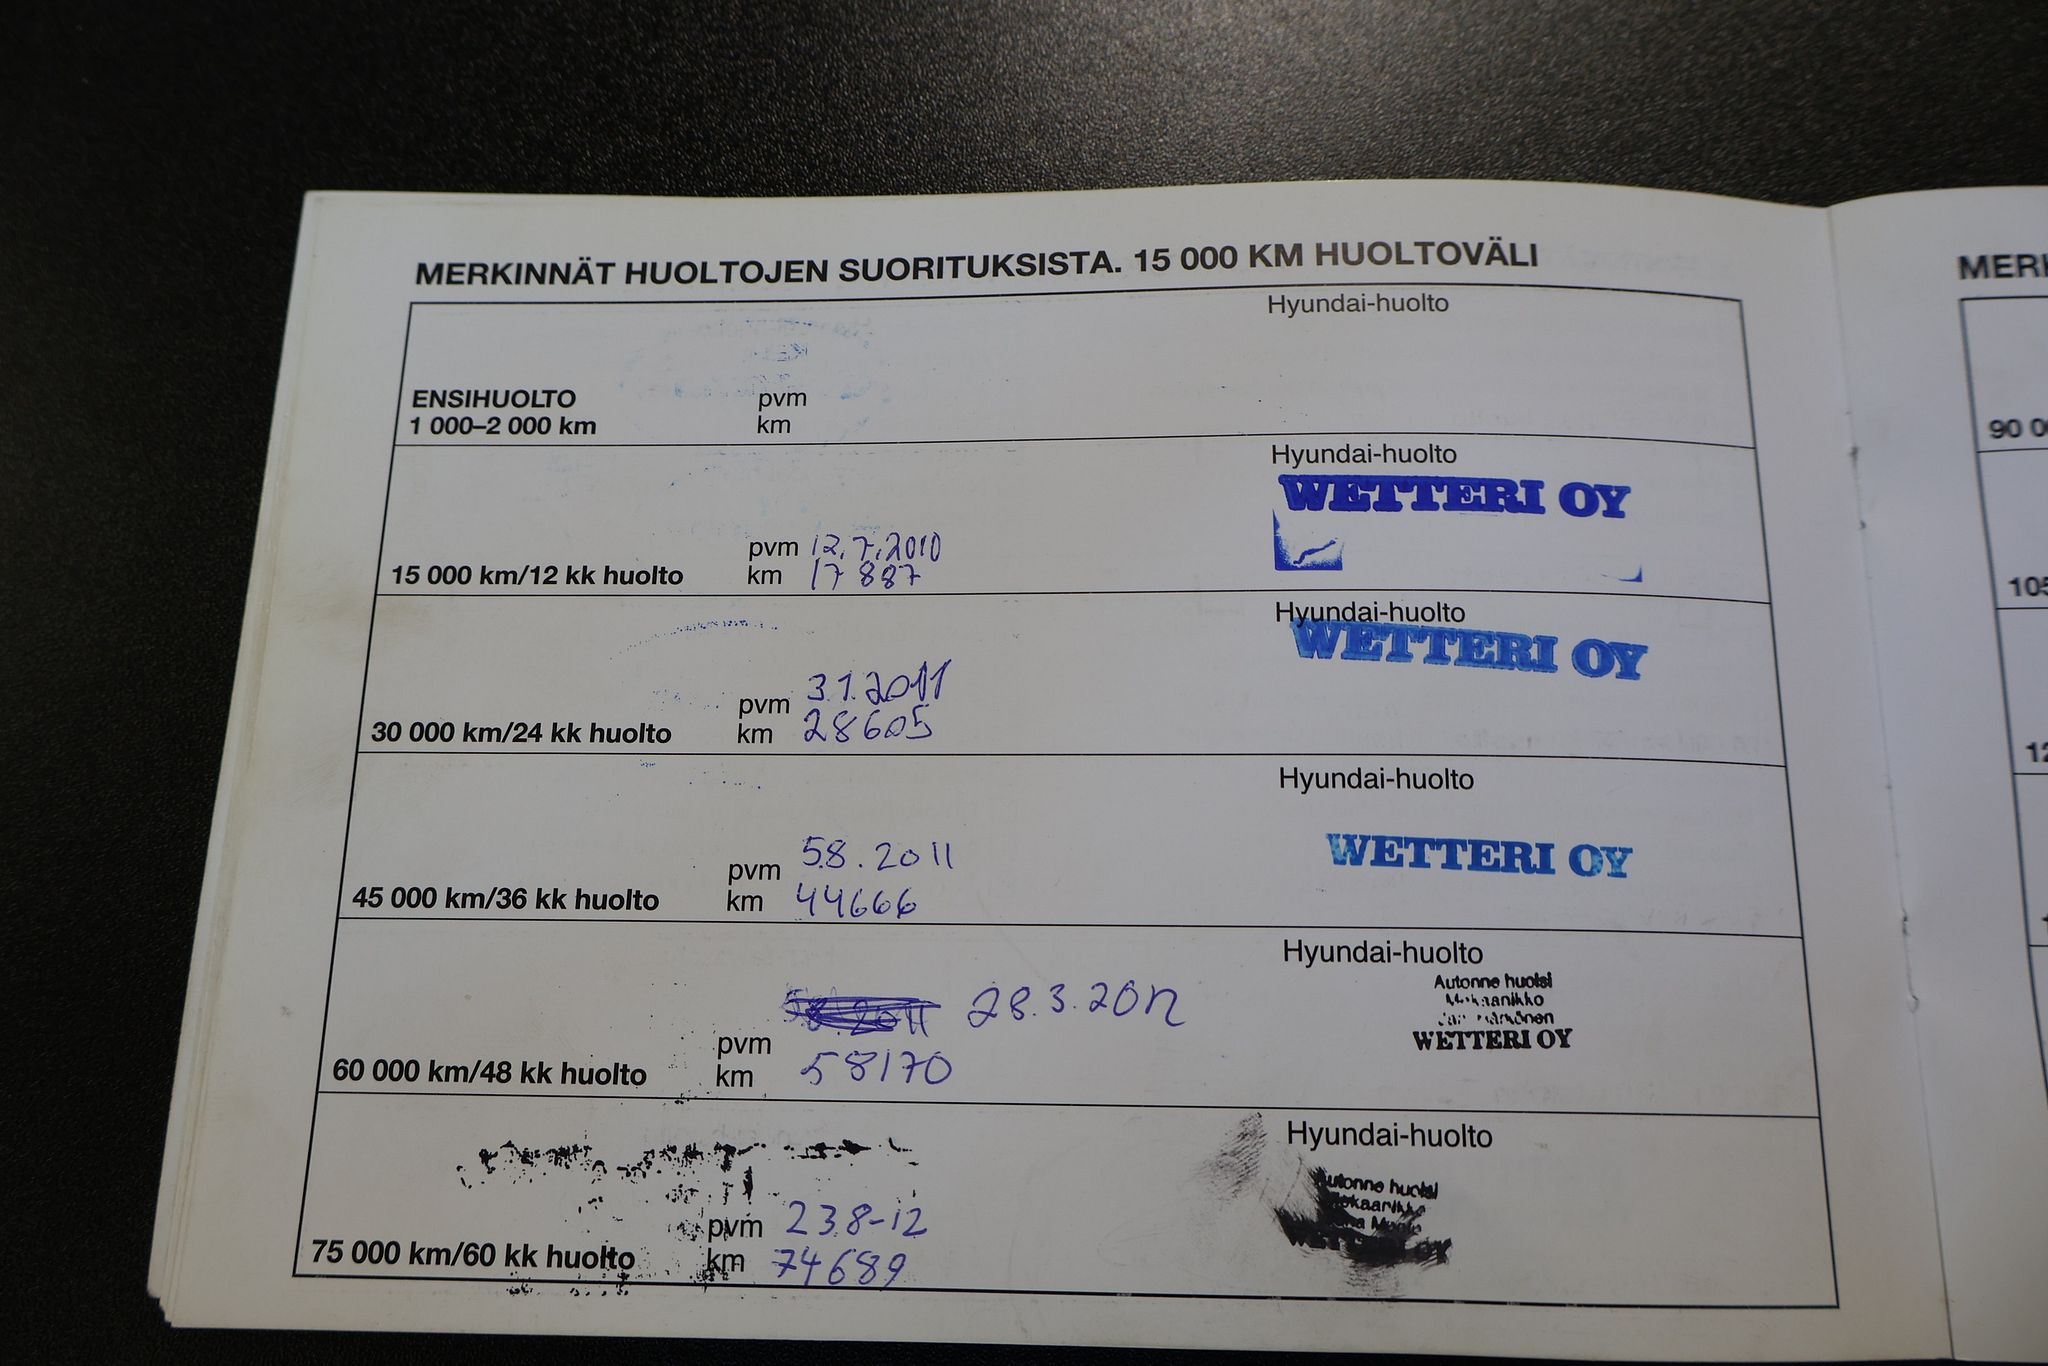 MERKINNÄT HUOLTOJEN SUORITUKSISTA. 15 000 KM HUOLTOVÄLI
Hyundai-huolto
ENSIHUOLTO pvm
1 000–2 000 km km
Hyundai-huolto
WETTERI OY
pvm 12.7.2010
15 000 km/12 kk huolto km 17 887
Hyundai-huolto
WETTERI OY
pvm 3.1.2011
30 000 km/24 kk huolto km 28605
Hyundai-huolto
WETTERI OY
pvm 5.8.2011
45 000 km/36 kk huolto km 44666
Hyundai-huolto
Autonne huolsi
Mekaanikko
WETTERI OY
pvm 28.3.2012
60 000 km/48 kk huolto km 58170
Hyundai-huolto
Autonne huolsi
Mekaanikko
WETTERI OY
pvm 23.8-12
75 000 km/60 kk huolto km 74689
MERK
90 00
105
12